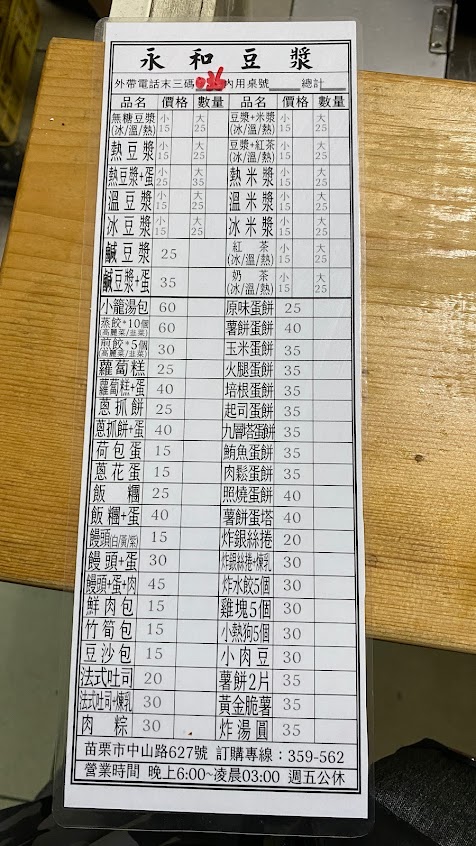 永和豆漿
外帶電話末三碼 內用桌號 總計
品名 價格 數量 品名 價格 數量
無糖豆漿(冰/溫/熱) 小15 大25 豆漿+米漿(冰/溫/熱) 小15 大25
熱豆漿 小15 大25 豆漿+紅茶(冰/溫/熱) 小15 大25
熱豆漿+蛋 小25 大35 熱米漿 小15 大25
溫豆漿 小15 大25 溫米漿 小15 大25
冰豆漿 小15 大25 冰米漿 小15 大25
鹹豆漿 25 紅茶(冰/溫/熱) 小15 大25
鹹豆漿+蛋 35 奶茶(冰/溫/熱) 小15 大25
小籠湯包 60 原味蛋餅 25
蒸餃*10個(高麗菜/韭菜) 60 薯餅蛋餅 40
煎餃*5個(高麗菜/韭菜) 30 玉米蛋餅 35
蘿蔔糕 25 火腿蛋餅 35
蘿蔔糕+蛋 40 培根蛋餅 35
蔥抓餅 25 起司蛋餅 35
蔥抓餅+蛋 40 九層塔蛋餅 35
荷包蛋 15 鮪魚蛋餅 35
蔥花蛋 15 肉鬆蛋餅 35
飯糰 25 照燒蛋餅 40
飯糰+蛋 40 薯餅蛋塔 40
饅頭(白/黃/紫) 15 炸銀絲捲 20
饅頭+蛋 30 炸銀絲捲+煉乳 30
饅頭+蛋+肉 45 炸水餃5個 30
鮮肉包 15 雞塊5個 30
竹筍包 15 小熱狗5個 30
豆沙包 15 小肉豆 30
法式吐司 20 薯餅2片 35
法式吐司+煉乳 30 黃金脆薯 35
肉粽 30 炸湯圓 35
苗栗市中山路627號 訂購專線：359-562
營業時間 晚上6:00~凌晨03:00 週五公休